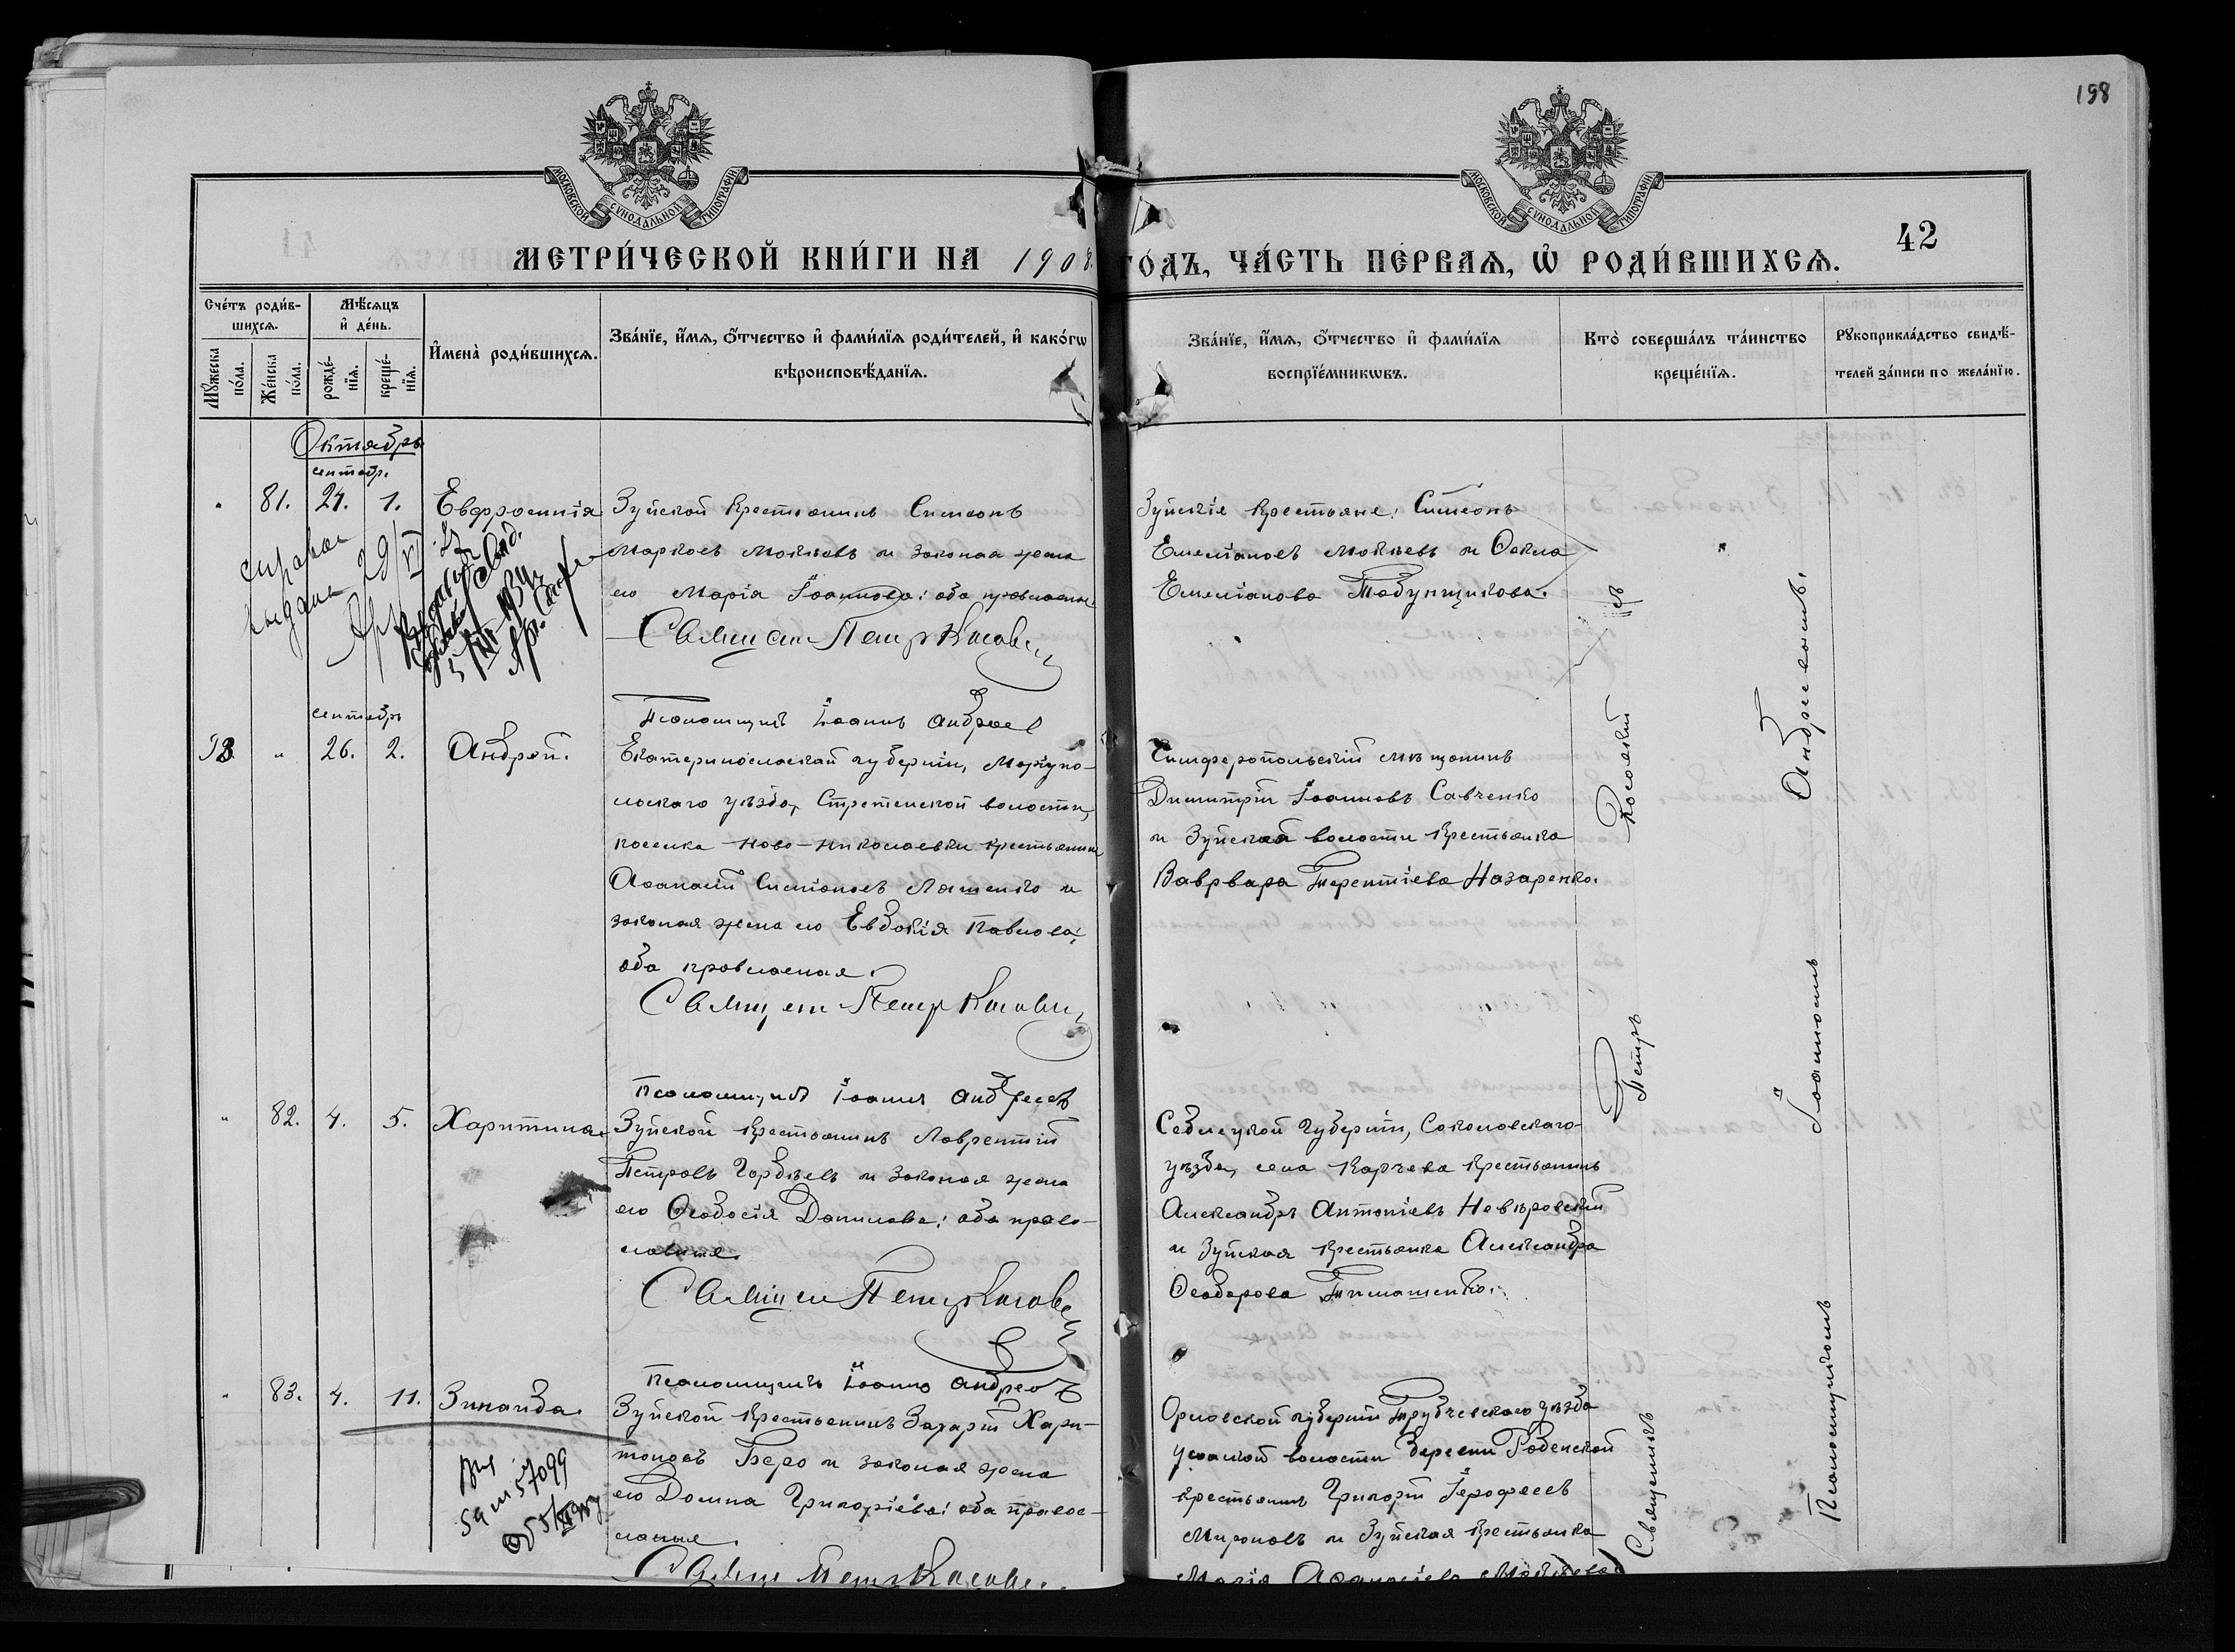 198
МОСКОВСКОЙ СУНОДАЛЬНОЙ ТИПОГРАФІИ
МОСКОВСКОЙ СУНОДАЛЬНОЙ ТИПОГРАФІИ
42
МЕТРИ́ЧЕСКОЙ КНИ́ГИ НА 1908
ГО́ДЪ, ЧА́СТЬ ПЕ́РВАѦ, Ѡ҆ РОДИ́ВШИХСѦ.
Сче́тъ роди́в-
шихсѧ.
Мѣ́сѧцъ
и҆ де́нь.
Мꙋ́жеска по́ла.
Же́нска по́ла.
рожде́-нїѧ.
креще́-нїѧ.
И҆мена̀ роди́вшихсѧ.
Зва́нїе, и҆́мѧ, ѻ҆́тчество и҆ фами́лїѧ роди́телей, и҆ како́гѡ
вѣроисповѣ́данїѧ.
Зва́нїе, и҆́мѧ, ѻ҆́тчество и҆ фами́лїѧ
воспрїе́мникѡвъ.
Кто̀ соверша́лъ та́инство
креще́нїѧ.
Рꙋкоприкла́дство свидѣ́-
телей за́писи по жела́нїю.
Октябрь
сентябр.
81. 24. 1. Евфросинія
Зуйской крестьянинъ Симеонъ
Марковъ Мокѣевъ и законая жена
его Марія Іоаннова: оба православные
Священ Петръ Косовск
справка
выдана 29/VI
Зуйскіе крестьяне: Симеонъ
Емеліановъ Мокѣевъ и Ѳекла
Емеліанова Табунщикова.
сентябрь
Псаломщикъ Іоаннъ Андреев
93. " 26. 2. Андрей.
Екатеринославской губерніи, Маріупо-
льскаго уѣзда, Стретенской волости,
поселка Ново-Николаевки крестьянинъ
Аѳанасій Симіоновъ Ляшенко и
законая жена его Евдокія Павлова,
оба православная.
Священ Петръ Косовск
Симферопольскій мѣщанинъ
Димитрій Іоанновъ Савченко
и Зуйской волости крестьянка
Ваврвара Терентіева Назаренко.
Псаломщикъ Іоаннъ Андреевъ
" 82. 4. 5. Харитина.
Зуйской крестьянинъ Лаврентій
Петровъ Гордѣевъ и законая жена
его Ѳеодосія Данилова: оба право-
славные.
Священ Петръ Косовск
Седлецкой губерніи, Соколовскаго
уѣзда, села Карчева крестьянинъ
Александръ Антоніевъ Невѣровскій
и Зуйская крестьянка Александра
Ѳеодорова Тимашенко.
Псаломщикъ Іоаннъ Андреевъ
" 83. 4. 11. Зинаида.
Зуйской крестьянинъ Захарій Хари-
тоновъ Беро и законая жена
его Домна Григоріева: оба право-
славные.
Священ Петръ Косовск
57099
Орловской губерніи Трубчевскаго уѣзда
волости деревни
крестьянинъ Григорій Іерофеевъ
Мироновъ и Зуйская крестьянка
Марія Аѳанасіева Мокѣева
Священникъ Петръ Косовскій
Псаломщикомъ Іоанномъ Андреевымъ.